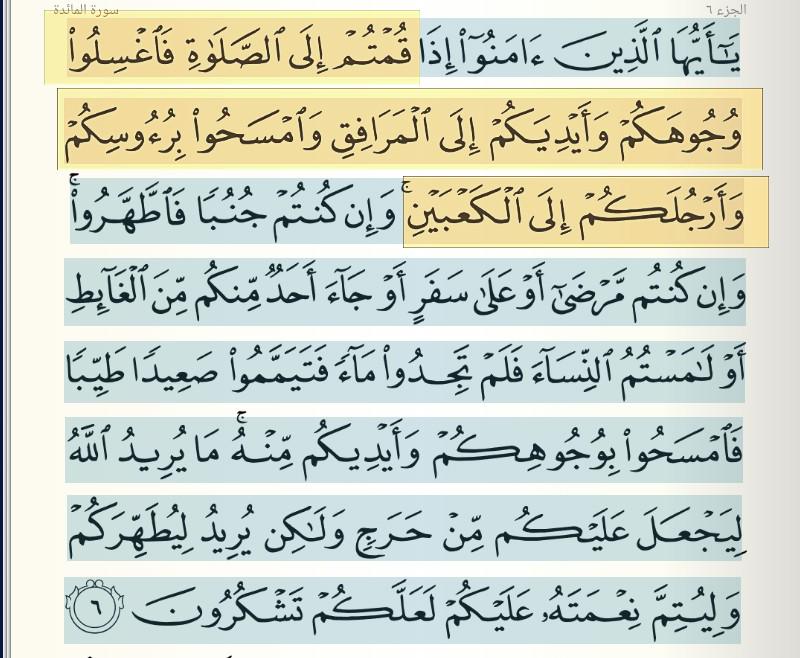 الجزء ٦ سورة المائدة
يَـٰٓأَيُّهَا ٱلَّذِينَ ءَامَنُوٓا۟ إِذَا قُمْتُمْ إِلَى ٱلصَّلَوٰةِ فَٱغْسِلُوا۟
وُجُوهَكُمْ وَأَيْدِيَكُمْ إِلَى ٱلْمَرَافِقِ وَٱمْسَحُوا۟ بِرُءُوسِكُمْ
وَأَرْجُلَكُمْ إِلَى ٱلْكَعْبَيْنِ ۚ وَإِن كُنتُمْ جُنُبًا فَٱطَّهَّرُوا۟ ۚ
وَإِن كُنتُم مَّرْضَىٰٓ أَوْ عَلَىٰ سَفَرٍ أَوْ جَآءَ أَحَدٌ مِّنكُم مِّنَ ٱلْغَآئِطِ
أَوْ لَـٰمَسْتُمُ ٱلنِّسَآءَ فَلَمْ تَجِدُوا۟ مَآءً فَتَيَمَّمُوا۟ صَعِيدًا طَيِّبًا
فَٱمْسَحُوا۟ بِوُجُوهِكُمْ وَأَيْدِيكُم مِّنْهُ ۚ مَا يُرِيدُ ٱللَّهُ
لِيَجْعَلَ عَلَيْكُم مِّنْ حَرَجٍ وَلَـٰكِن يُرِيدُ لِيُطَهِّرَكُمْ
وَلِيُتِمَّ نِعْمَتَهُۥ عَلَيْكُمْ لَعَلَّكُمْ تَشْكُرُونَ ٦